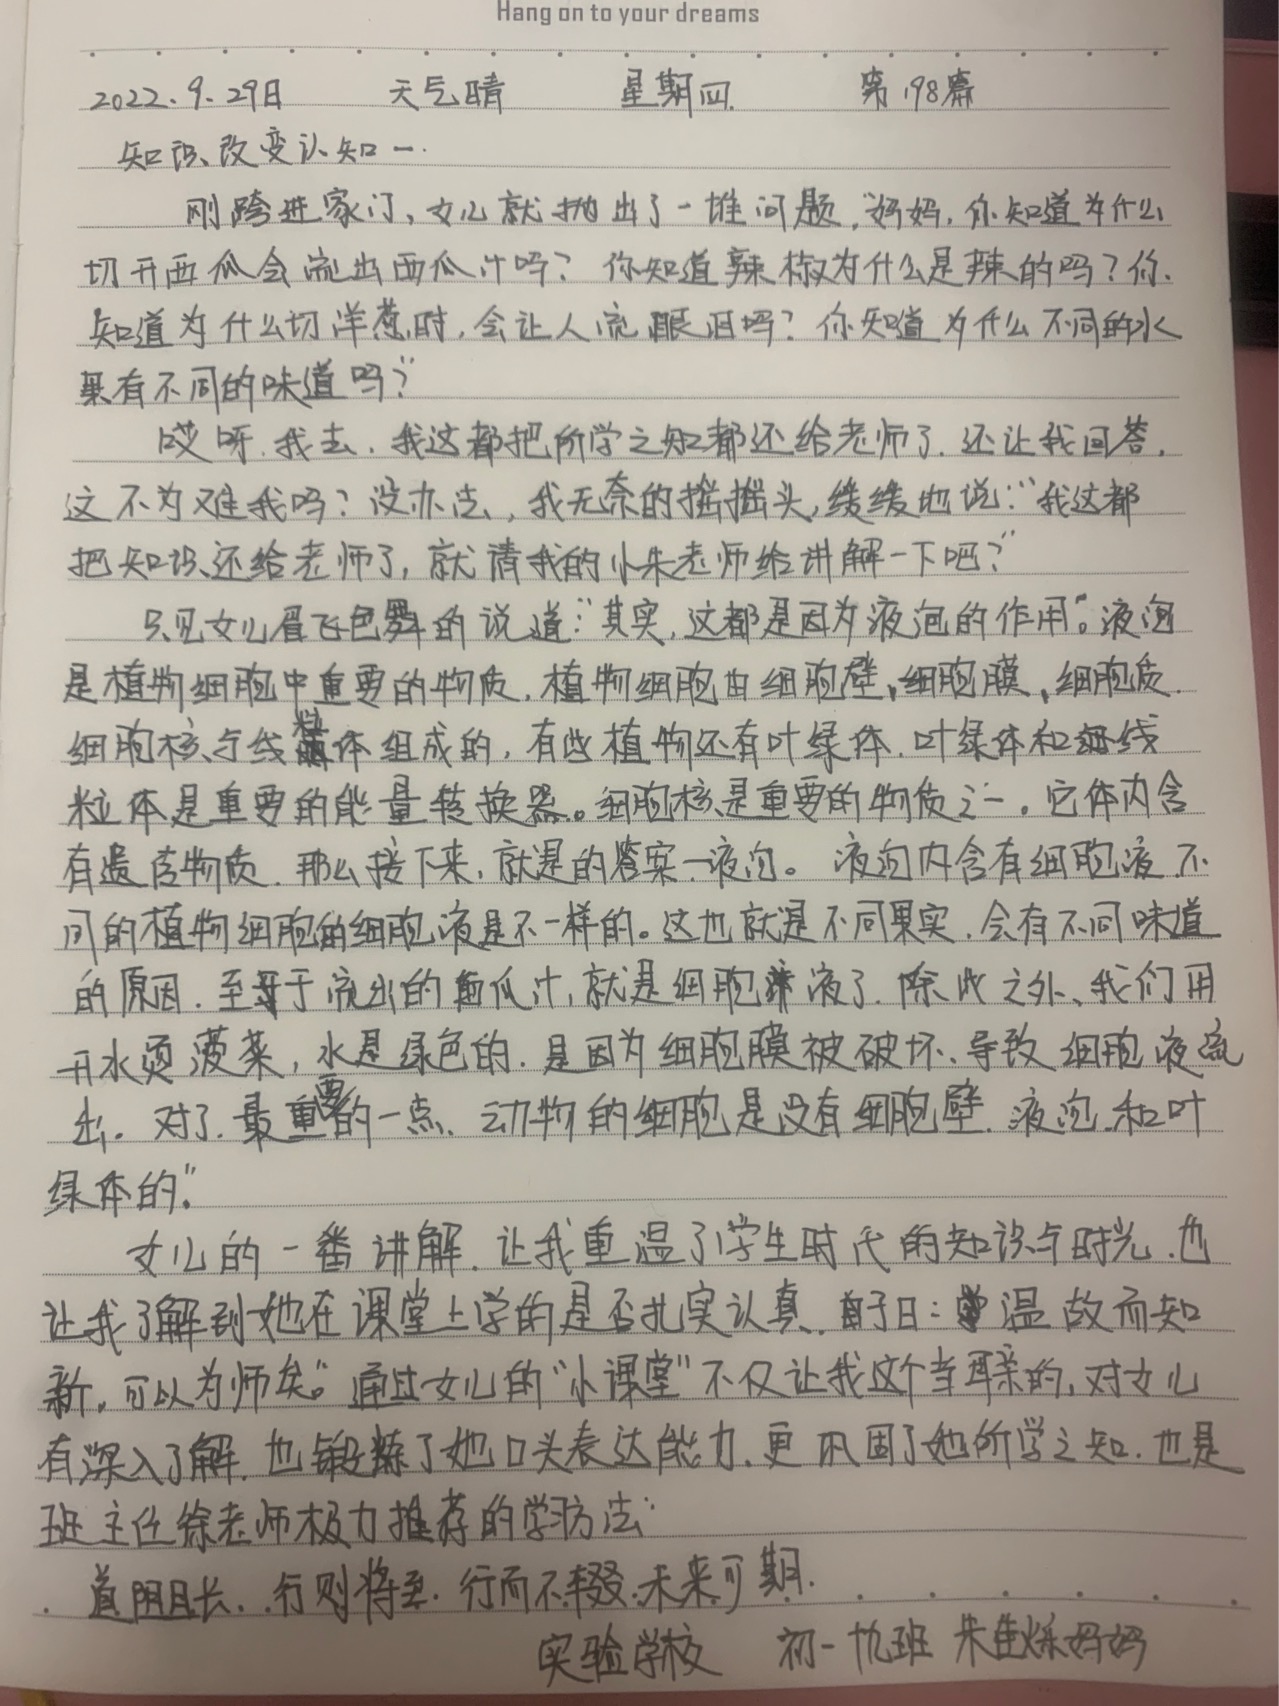 Hang on to your dreams
2022.9.29日 天气晴 星期四. 第198篇
知识改变认知一.
刚跨进家门,女儿就抛出了一堆问题,"妈妈,你知道为什么
切开西瓜会流出西瓜汁吗?你知道辣椒为什么是辣的吗?你
知道为什么切洋葱时,会让人流眼泪吗?你知道为什么不同的水
果有不同的味道吗?"
哎呀.我去.我这都把所学之知都还给老师了.还让我回答,
这不为难我吗?没办法,我无奈的摇摇头,缓缓地说:"我这都
把知识还给老师了,就请我的小朱老师给讲解一下吧?"
只见女儿眉飞色舞的说道:"其实,这都是因为液泡的作用"。液泡
是植物细胞中重要的物质.植物细胞由细胞壁、细胞膜、细胞质.
细胞核与线粒体组成的,有些植物还有叶绿体.叶绿体和线
粒体是重要的能量转换器。细胞核是重要的物质之一。它体内含
有遗传物质.那么接下来,就是的答案一液泡。液泡内含有细胞液.不
同的植物细胞的细胞液是不一样的。这也就是不同果实.会有不同味道
的原因.至于流出的西瓜汁,就是细胞液了.除此之外、我们用
开水烫菠菜,水是绿色的.是因为细胞膜被破坏、导致细胞液流
出。对了.最重要的一点、动物的细胞是没有细胞壁.液泡.和叶
绿体的."
女儿的一番讲解.让我重温了学生时代的知识与时光.也
让我了解到她在课堂上学的是否扎实认真.子曰:温故而知
新,可以为师矣。"通过女儿的"小课堂"不仅让我这个当母亲的,对女儿
有深入了解.也锻炼了她口头表达能力.更巩固了她所学之知.也是
班主任徐老师极力推荐的学习方法.
道阻且长.行则将至.行而不辍.未来可期.
实验学校 初一九班 朱佳烁妈妈